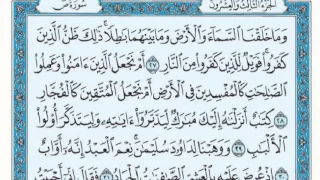 الجزء الثالث والعشرون سورة ص
وَمَا خَلَقْنَا السَّمَاءَ وَالْأَرْضَ وَمَا بَيْنَهُمَا بَاطِلًا ذَٰلِكَ ظَنُّ الَّذِينَ
كَفَرُوا فَوَيْلٌ لِّلَّذِينَ كَفَرُوا مِنَ النَّارِ ٢٧ أَمْ نَجْعَلُ الَّذِينَ ءَامَنُوا وَعَمِلُوا
الصَّالِحَاتِ كَالْمُفْسِدِينَ فِي الْأَرْضِ أَمْ نَجْعَلُ الْمُتَّقِينَ كَالْفُجَّارِ
٢٨ كِتَابٌ أَنزَلْنَاهُ إِلَيْكَ مُبَارَكٌ لِّيَدَّبَّرُوا ءَايَاتِهِ وَلِيَتَذَكَّرَ أُولُوا
الْأَلْبَابِ ٢٩ وَوَهَبْنَا لِدَاوُودَ سُلَيْمَانَ نِعْمَ الْعَبْدُ إِنَّهُ أَوَّابٌ
٣٠ إِذْ عُرِضَ عَلَيْهِ بِالْعَشِيِّ الصَّافِنَاتُ الْجِيَادُ ٣١ فَقَالَ إِنِّي أَحْبَبْتُ